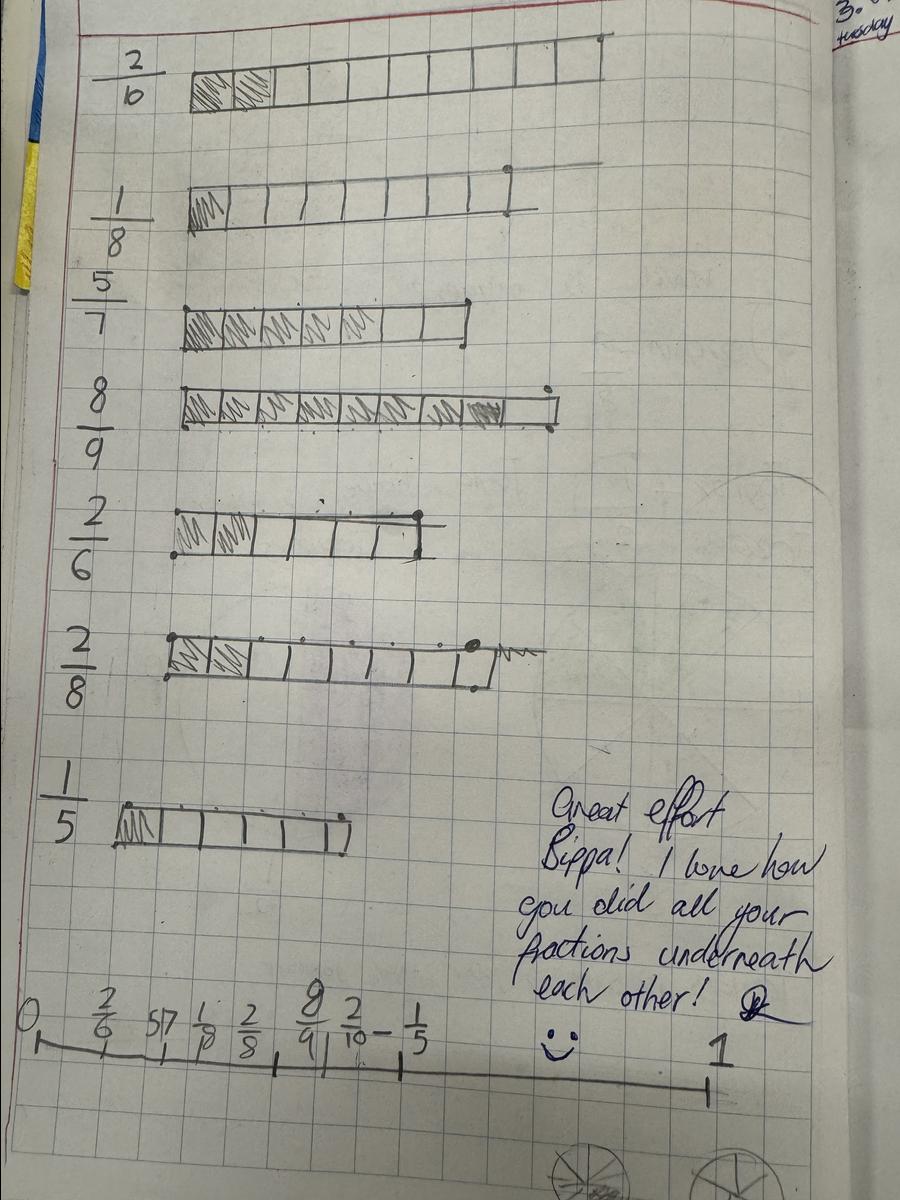 3.
tuesday
2/10
1/8
5/7
8/9
2/6
2/8
1/5
Great effort
Bippa! I love how
you did all your
fractions underneath
each other!
0 2/6 57 1/8 2/8 8/9 2/10 - 1/5 1